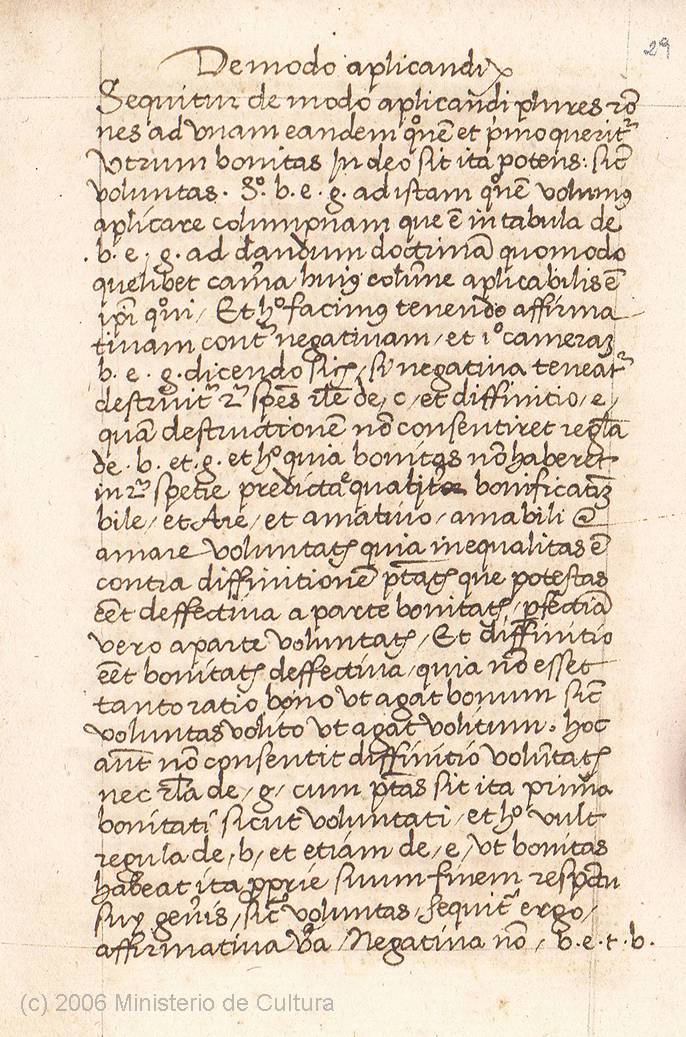 29
De modo aplicandi
Sequitur de modo aplicandi plures rõ
nes ad vnam eandem q̃nẽ et p̃mo querit᷑
Vtrum bonitas in deo sit ita potens: sic̃
voluntas. Sº. b. e. g. ad istam q̃nẽ volumꝰ
aplicare columpnam que ẽ in tabula de
. b. e. g. ad dandum doctrinã quomodo
quelibet cam̃a huiꝰ colũne aplicabilis ẽ
ip̃i q̃oni / Et hº facimꝰ tenendo affirma
tiuam cont᷑ negatiuam / et 1º cameraʒ
b. e. g. dicendo sic / si negatiua teneat᷑
destruit᷑ 2᷑ spẽs rl̃e de, c / et diffinitio / e /
quã destructionẽ nõ consentiret reg̃la
de. b. et. g. et hº quia bonitas nõ haberet
in 2᷑ spetie predicta bonificatiuʒ
bile / et Are / et amatiuo / amabili @
amare voluntatꝭ quia inequalitas ẽ
contra diffinitionẽ p̃tatꝭ que potestas
eẽt deffectiua a parte bonitatꝭ / ꝑfectiã
vero a parte voluntatꝭ / Et diffinitio
eẽt bonitatꝭ deffectiua / quia nõ esset
tanto ratio bono vt agat bonum sic̃
voluntas volito vt agat volitum. hoc
aut̃ nõ consentit diffinitio volũtatꝭ
nec rl̃a de / g / cum p̃tas sit ita prima
bonitati sicut voluntati / et hº vult
regula de / b / et etiam de / e / vt bonitas
habeat ita ꝓprie suum finem respectu
sui gen̄is / sic̃ voluntas / sequit᷑ ergo /
affirmatiua v̄a / Negatiua nõ / b. e. t. b.
(c) 2006 Ministerio de Cultura